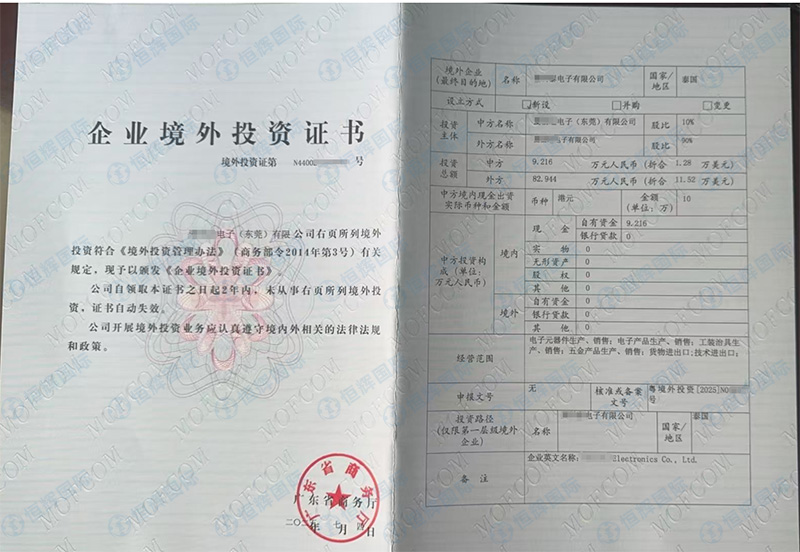 企业境外投资证书
境外投资证第 N4400 号
电子（东莞）有限公司右页所列境外
投资符合《境外投资管理办法》（商务部令2014年第3号）有关
规定，现予以颁发《企业境外投资证书》。
公司自领取本证书之日起2年内，未从事右页所列境外投
资，证书自动失效。
公司开展境外投资业务应认真遵守境内外相关的法律法规
和政策。
广东省商务厅
广东省商务厅
二〇二 年 七月 日
境外企业
(最终目的地)
名称
电子有限公司
国家/
地区
泰国
设立方式
新设
并购
变更
投资
主体
中方名称
电子（东莞）有限公司
股比
10%
外方名称
电子有限公司
股比
90%
投资
总额
中方
9.216
万元人民币（折合 1.28 万美元）
外方
82.944
万元人民币（折合 11.52 万美元）
中方境内现金出资
实际币种和金额
币种
港元
金额
(单位：万)
10
中方投资构
成（单位：
万元人民币）
境内
现金
自有资金
9.216
银行贷款
0
实物
0
无形资产
0
股权
0
其他
0
境外
自有资金
0
银行贷款
0
其他
0
经营范围
电子元器件生产、销售；电子产品生产、销售；工装治具生
产、销售；五金产品生产、销售；货物进出口;技术进出口;
申报文号
无
核准或备案
文号
粤境外投资[2025]N0
号
投资路径
(仅限第一层级境外
企业)
名称
电子有限公司
国家/
地区
泰国
备注
企业英文名称：
Electronics Co., Ltd.
MOFCOM
恒辉国际